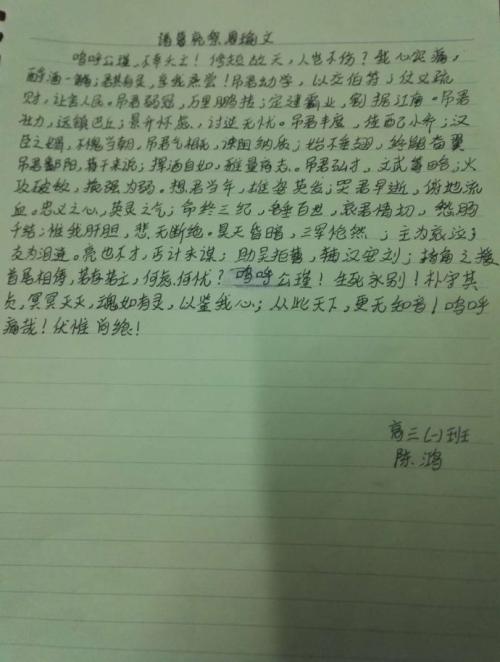 诸葛亮祭周瑜文
呜呼公瑾，不幸夭亡！修短故天，人岂不伤？我心实痛，
酹酒一觞；君其有灵，享我烝尝！吊君幼学，以交伯符；仗义疏
财，让舍人民。吊君弱冠，万里鹏抟；定建霸业，割据江南。吊君
壮力，远镇巴丘；景升怀虑，讨逆无忧。吊君丰度，佳配小乔；汉
臣之婿，不愧当朝，吊君气概，谏阻纳质；始不垂翅，终能奋翼
吊君鄱阳，蒋干来说；挥洒自如，雅量高志。吊君弘才，文武筹略；火
攻破敌，挽强为弱。想君当年，雄姿英发；哭君早逝，俯地流
血。忠义之心，英灵之气；命终三纪，名垂百世，哀君情切，愁肠
千结；惟我肝胆，悲无断绝。昊天昏暗，三军怆然；主为哀泣；
友为泪涟。亮也不才，丐计求谋；助吴拒曹，辅汉安刘；掎角之援
首尾相俦，若存若亡，何虑何忧？呜呼公瑾！生死永别！朴守其
贞，冥冥灭灭，魂如有灵，以鉴我心；从此天下，更无知音！呜呼
痛哉！伏惟尚飨！
高三(一)班
陈鸿